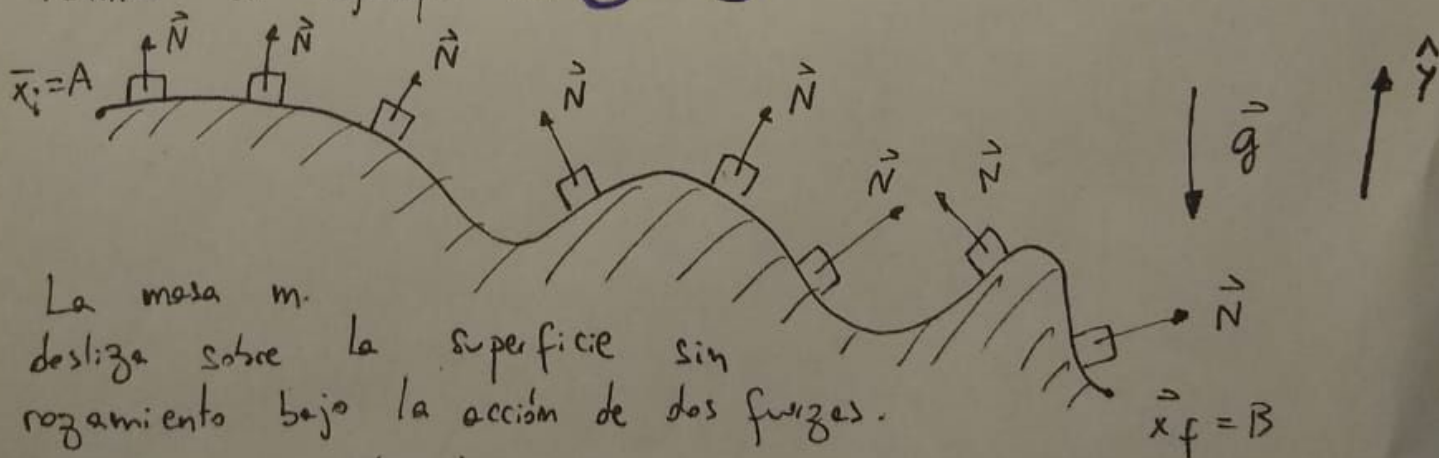 N⃗ N⃗ N⃗ N⃗ N⃗ N⃗ N⃗ N⃗
x̄ᵢ=A
g⃗
ŷ
La masa m.
desliza sobre la superficie sin
rozamiento bajo la acción de dos fuerzas.
x⃗f = B